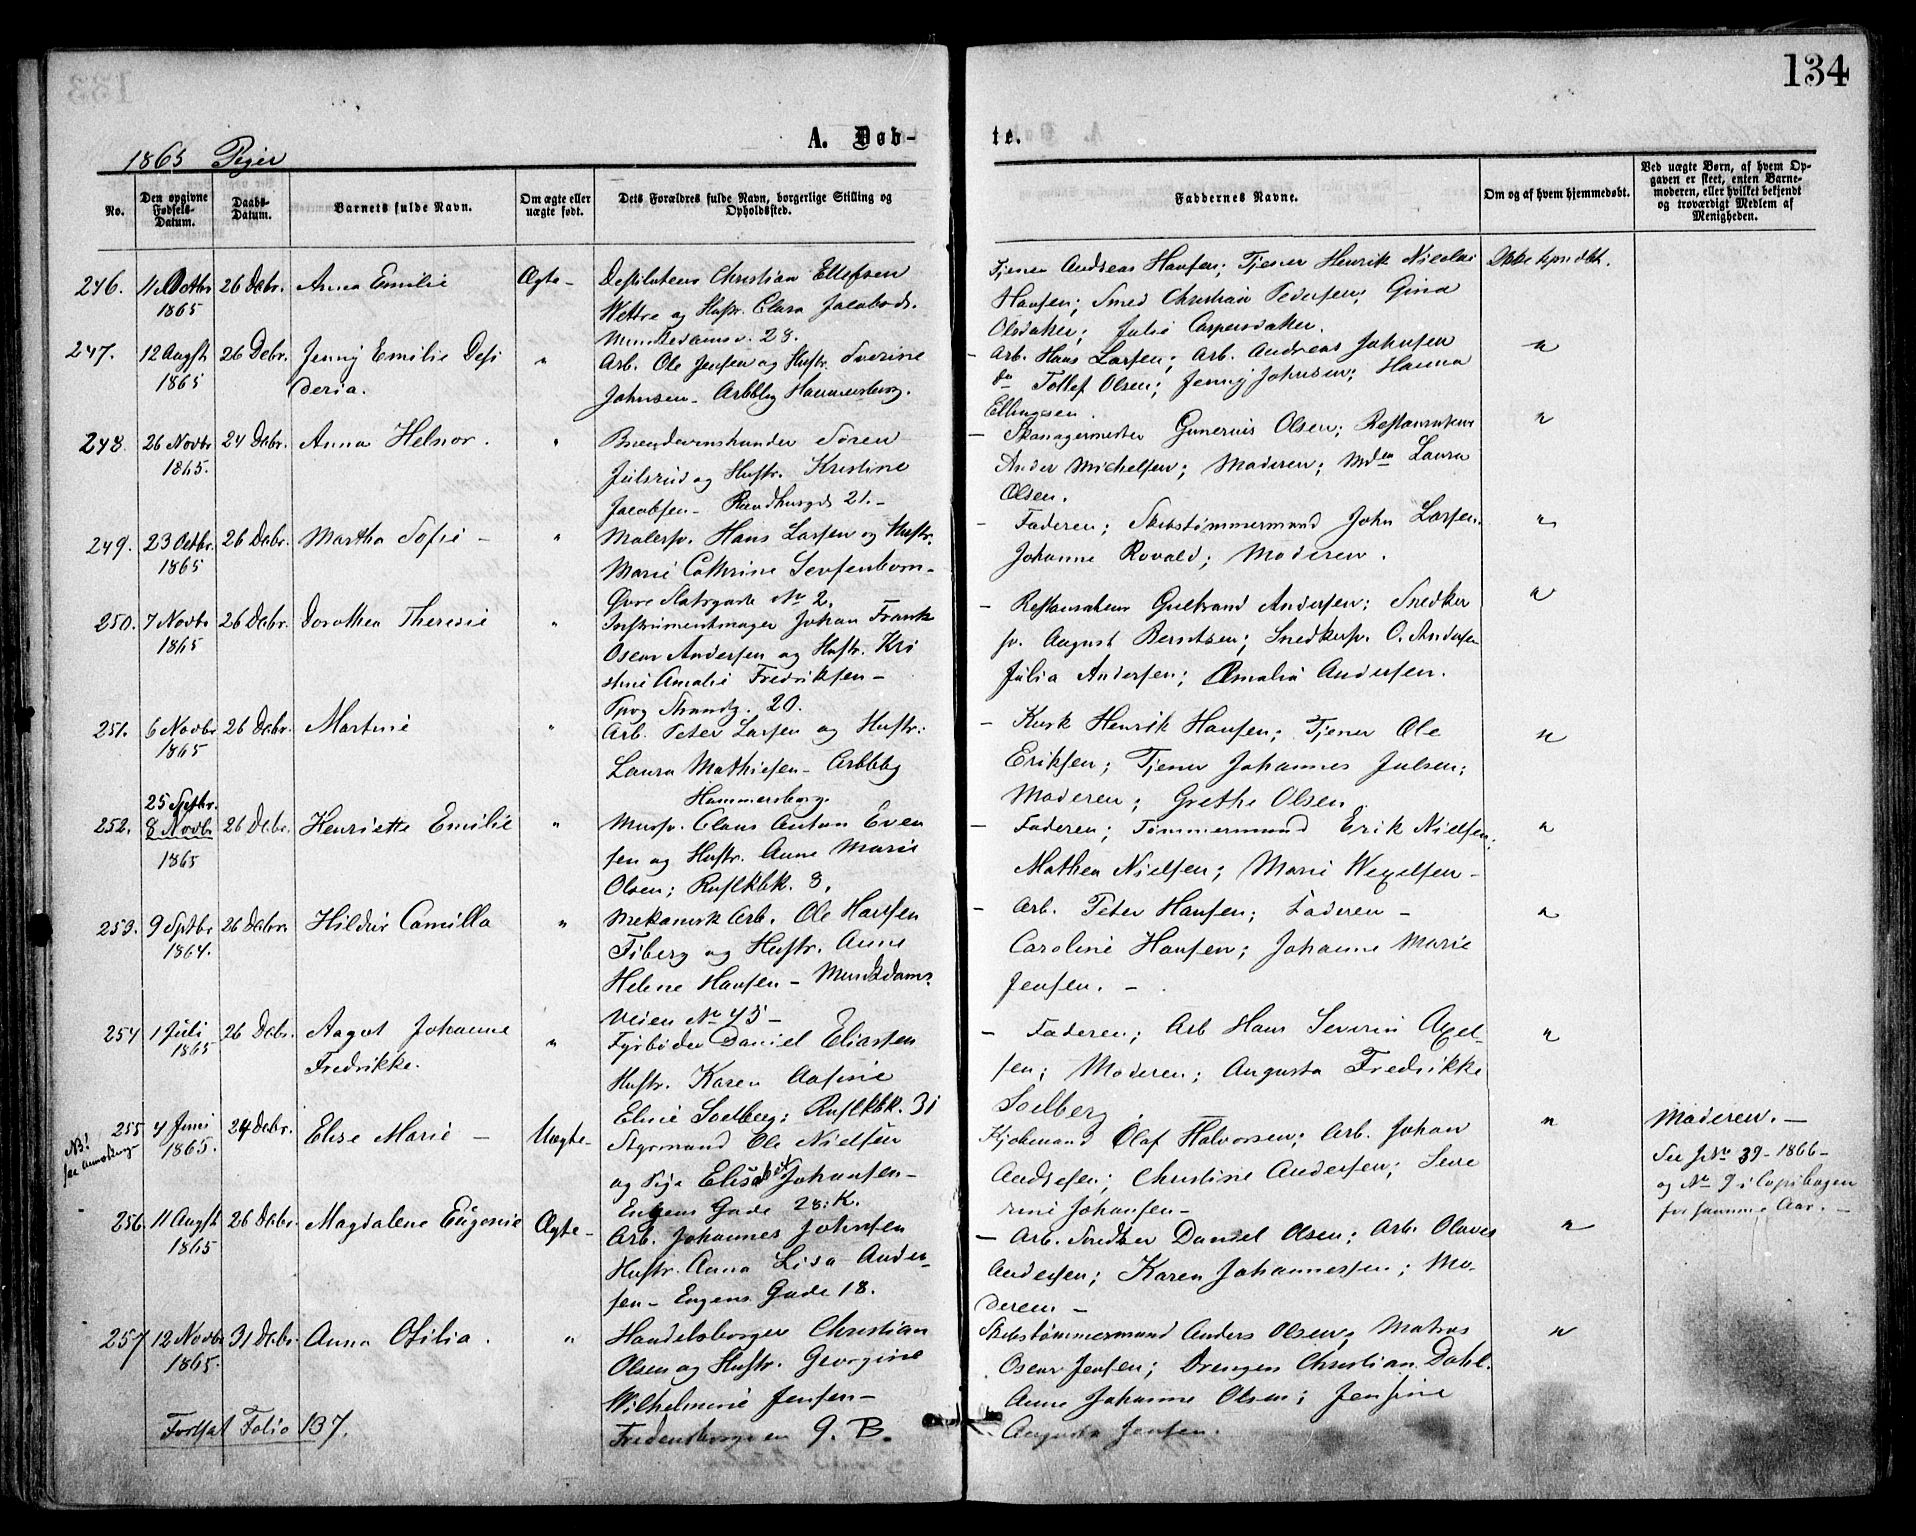 134
A. Døb-
te.
1865 Piger
No.
Den opgivne Fødsels-Datum.
Daabs-Datum.
Barnets fulde Navn.
Om ægte eller uægte født.
Dets Forældres fulde Navn, borgerlige Stilling og Opholdssted.
Faddernes Navne.
Om og af hvem hjemmedøbt.
Ved uægte Børn, af hvem Op-
gaven er skeet, enten Barne-
moderen, eller hvilket bekjendt
og troværdigt Medlem af
Menigheden.
246. 11 Octbr 1865 26 Debr. Anna Emilie Ægte-
Christian Ellefsen
Wettre og Hustr. Clara Jacobsd.
Munkedamsv. 28.
Tjener Andreas Hansen; Tjener Henrik Nicolai
Hansen; Smed Christian Pedersen; Gina
Olsdatter; Julie Caspersdatter.
Ikke hjmdbt.
247. 12 Augst 1865 26 Debr. Jenny Emilie Desi
deria. "
Arb. Ole Jensen og Hustr. Severine
Johnsen- Arbbbg Hammersborg.
- Arb. Hans Larsen; Arb. Andreas Johnsen
do Tollef Olsen; Jenny Johnsen; Hanna
Ellingsen. "
248. 26 Novbr 1865. 24 Debr. Anna Helnor. "
Brændevinshandler Søren
Julsrud og Hustr. Kristine
Jacobsen- 21.-
- Gunerius Olsen; Restaurateur
Ander Michelsen; Moderen; Mdm Laura
Olsen. "
249. 23 Octbr. 1865 26 Debr. Martha Sofie - "
Malersv. Hans Larsen og Hustr.
Marie Cathrine
Øvre Slotsgade No 2.
- Faderen; Skibstømmermand John Larsen.
Johanne Rovald; Moderen. "
250. 7 Novbr 1865 26 Debr. Dorothea Theresie "
Instrumentmager Johan Frank
Oscar Andersen og Hustr. Kri
stine Amalie Fredriksen-
Strandg. 20.
- Restaurateur Gulbrand Andersen; Snedker
sv. August Berntsen; Snedkersv. O. Andersen
Julia Andersen; Amalia Andersen. "
251. 6 Novbr 1865 26 Debr. Martine "
Arb. Peter Larsen og Hustr:
Laura Mathiesen- Arbbbg
Hammersborg.
- Kusk Henrik Hansen; Tjener Ole
Eriksen; Tjener Johannes Julsen;
Moderen; Grethe Olsen. "
252. 25 Sptbr. 8 Novbr 1865 26 Debr. Henriette Emilie "
Mursv. Claus Anton Even
sen og Hustr. Anne Marie
Olsen; Rusfkbk. 8.
- Faderen; Tømmermand Erik Nielsen;
Mathea Nielsen; Marie Wexelsen- "
253. 9 Sptbr 1864. 26 Debr. Hildur Camilla "
Mekanisk Arb. Ole Hansen
Fiberg og Hustr. Anne
Helene Hansen- Munkdams
veien No 45-
- Arb. Peter Hansen; Faderen-
Caroline Hansen; Johanne Marie
Jensen. - "
254 1 Juli 1865 26 Debr. Aagot Johanne
Fredrikke. "
Fyrbøder Daniel Eliassen
Hustr. Karen
Elise Soelberg; Rusfkbk. 31
- Faderen; Arb Hans Severin Axel-
sen; Moderen; Augusta Fredrikke
Soelberg. "
255 4 Juni 1865. 24 Debr. Elise Marie - Uægte-
NB!
see Anmkning
Styrmand Ole Nielsen
og Pige Elisabet Johansen-
Engens Gade 28. K.
Olaf Halvorsen; Arb. Johan
Andresen; Christine Andersen; Seve
rine Johansen- "
Moderen.-
See JNo 39-1866-
og No 9 i Copibogen
for samme Aar.-
256. 11 Augst 1865 26 Debr. Magdalene Eugenie Ægte-
Arb. Johannes Johnsen
Hustr. Anna Lisa Ander
sen- Engens Gade 18.
- Arb. Snedker Daniel Olsen; Arb. Olaves
Andersen; Karen Johannessen; Mo-
deren- "
257 12 Novbr 1865. 31 Debr Anna Otilia. "
Handelsborger Christian
Olsen og Hustr. Georgine
Wilhelmine Jensen-
Fredensborgveien 9. B.
Skibstømmermand Anders Olsen; Matros
Oscar Jensen; Drengen Christian Dahl.
Anne Johanne Olsen; Jensine
Augusta Jensen. "
Fortsat Folio 137.